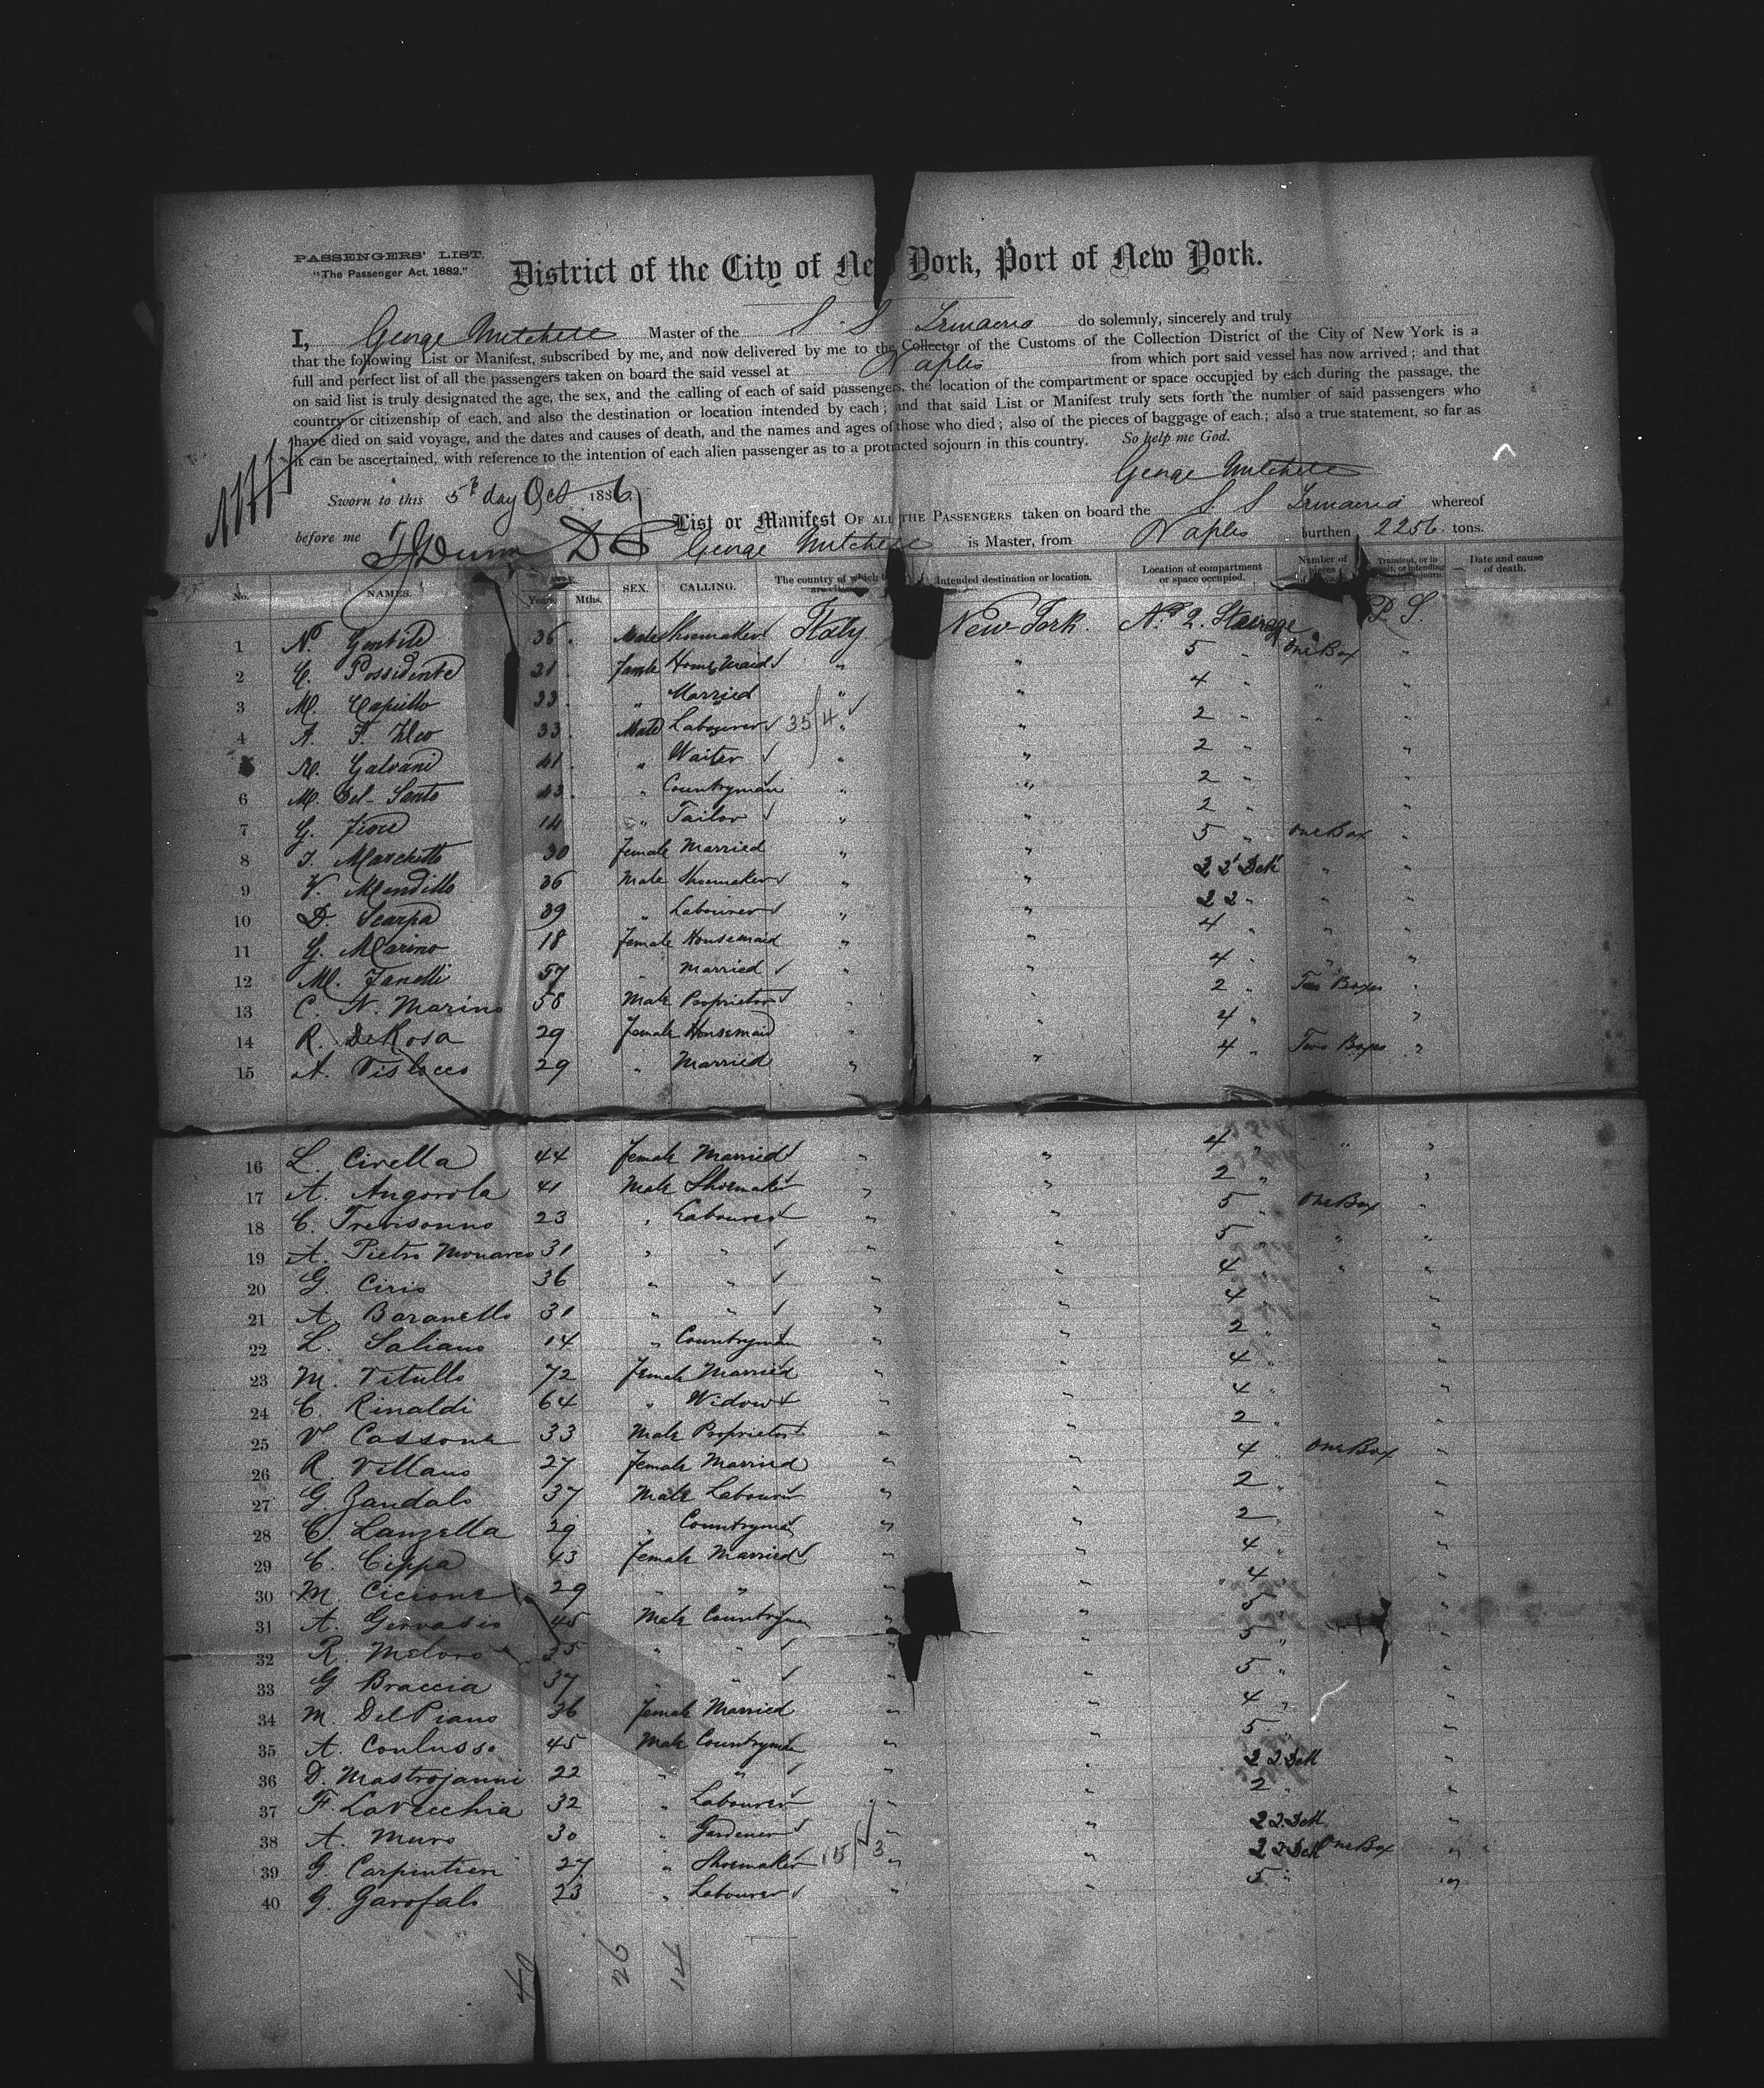 PASSENGERS' LIST.
"The Passenger Act, 1882."
District of the City of New York, Port of New York.
I, George Mitchell Master of the S. S. do solemnly, sincerely and truly
that the following List or Manifest, subscribed by me, and now delivered by me to the Collector of the Customs of the Collection District of the City of New York is a
full and perfect list of all the passengers taken on board the said vessel at Naples from which port said vessel has now arrived; and that
on said list is truly designated the age, the sex, and the calling of each of said passengers, the location of the compartment or space occupied by each during the passage, the
country or citizenship of each, and also the destination or location intended by each; and that said List or Manifest truly sets forth the number of said passengers who
have died on said voyage, and the dates and causes of death, and the names and ages of those who died; also of the pieces of baggage of each; also a true statement, so far as
it can be ascertained, with reference to the intention of each alien passenger as to a protracted sojourn in this country. So help me God.
George Mitchell
Sworn to this 5th day Oct 1886
before me
List or Manifest OF ALL THE PASSENGERS taken on board the S. S. whereof
George Mitchell is Master, from Naples burthen 2256 tons.
No. NAMES. Years Mths. SEX. CALLING. The country of which Intended destination or location. Location of compartment or space occupied. Number of pieces Transient, or in Date and cause of death.
1 N. Gentile 36 Male Shoemaker Italy New York. No. 2. Steerage P. S.
2 C. Possidente 21 Female House Maid " " 5 " One Box "
3 M. 33 " Married " " 4 " " "
4 A. F. 33 Male Labourer 35/4 " " 2 " " "
5 R. Galvani 41 " Waiter " " 2 " "
6 M. Del-Santo 43 " Countryman " " 2 " "
7 G. Fiore 14 " Tailor " " 2 " "
8 F. Marchetto 30 Female Married " " 5 " One Box "
9 V. Mendillo 36 Male Shoemaker " " 2 2d Deck " "
10 D. Scarpa 39 " Labourer " " 2 2 " " "
11 G. Marino 18 Female Housemaid " " 4 " " "
12 M. Zanelli 57 " Married " " 4 " " "
13 C. N. Marino 58 Male Proprietor " " 2 " Two Boxes "
14 R. DeRosa 29 Female Housemaid " " 4 " "
15 A. 29 " Married " " 4 " Two Boxes "
16 L. Cirella 44 Female Married " " 4 " " "
17 A. Angorola 41 Male Shoemaker " " 2 " "
18 C. Trevisonno 23 " Labourer " " 5 " One Box "
19 A. Pietro Monarco 31 " " " " 5 " " "
20 G. Ciris 36 " " " " 4 " " "
21 A. Baranello 31 " " " " 4 " "
22 L. Saliano 14 " Countryman " " 2 " "
23 M. Titullo 72 Female Married " " 4 " "
24 C. Rinaldi 64 " Widow " " 4 " "
25 V. Cassone 33 Male Proprietor " " 2 " "
26 R. Villano 27 Female Married " " 4 " One Box "
27 G. Zandalo 37 Male Labourer " " 2 " "
28 C. Lanzella 29 " Countryman " " 2 " "
29 C. Cippa 43 Female Married " " 4 " "
30 M. Cicione 29 " " " " 4 " "
31 A. Gervasio 45 Male Countryman " " 5 " "
32 R. Meloro " " " " 5 " "
33 G Braccia 37 " " " " 5 " "
34 M. Del Piano 36 Female Married " " 4 " "
35 A. Conlusso 45 Male Countryman " " 5 " "
36 D. Mastrojanni 22 " " " " 2 2 Deck "
37 F. LaVecchia 32 " Labourer " " 2 " "
38 A. Muro 30 " Gardener " " 2 2 Deck "
39 G. Carpentieri 27 " Shoemaker 115/3 " " 2 2 Deck One Box "
40 G. Garofalo 23 " Labourer " " 5 " "
40 26 14